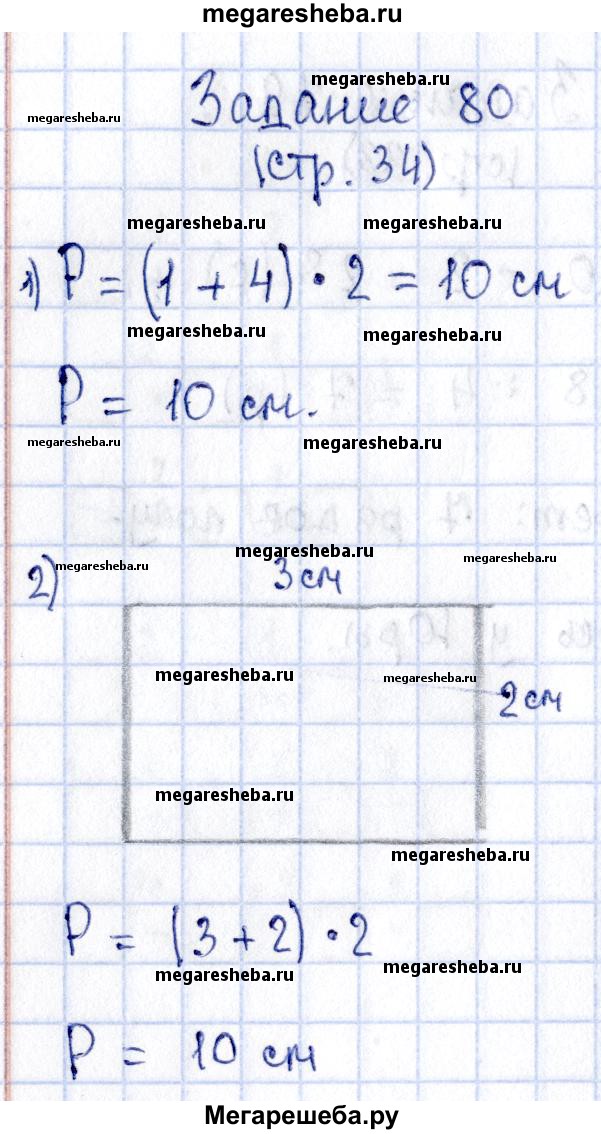 megaresheba.ru
megaresheba.ru
megaresheba.ru
Задание 80
(стр. 34)
megaresheba.ru megaresheba.ru
1) P = (1 + 4) · 2 = 10 см
megaresheba.ru megaresheba.ru
P = 10 см.
megaresheba.ru megaresheba.ru
megaresheba.ru megaresheba.ru
2) megaresheba.ru
3 см
megaresheba.ru megaresheba.ru
2 см
megaresheba.ru
megaresheba.ru
P = (3 + 2) · 2
megaresheba.ru megaresheba.ru
P = 10 см
Мегарешеба.ру